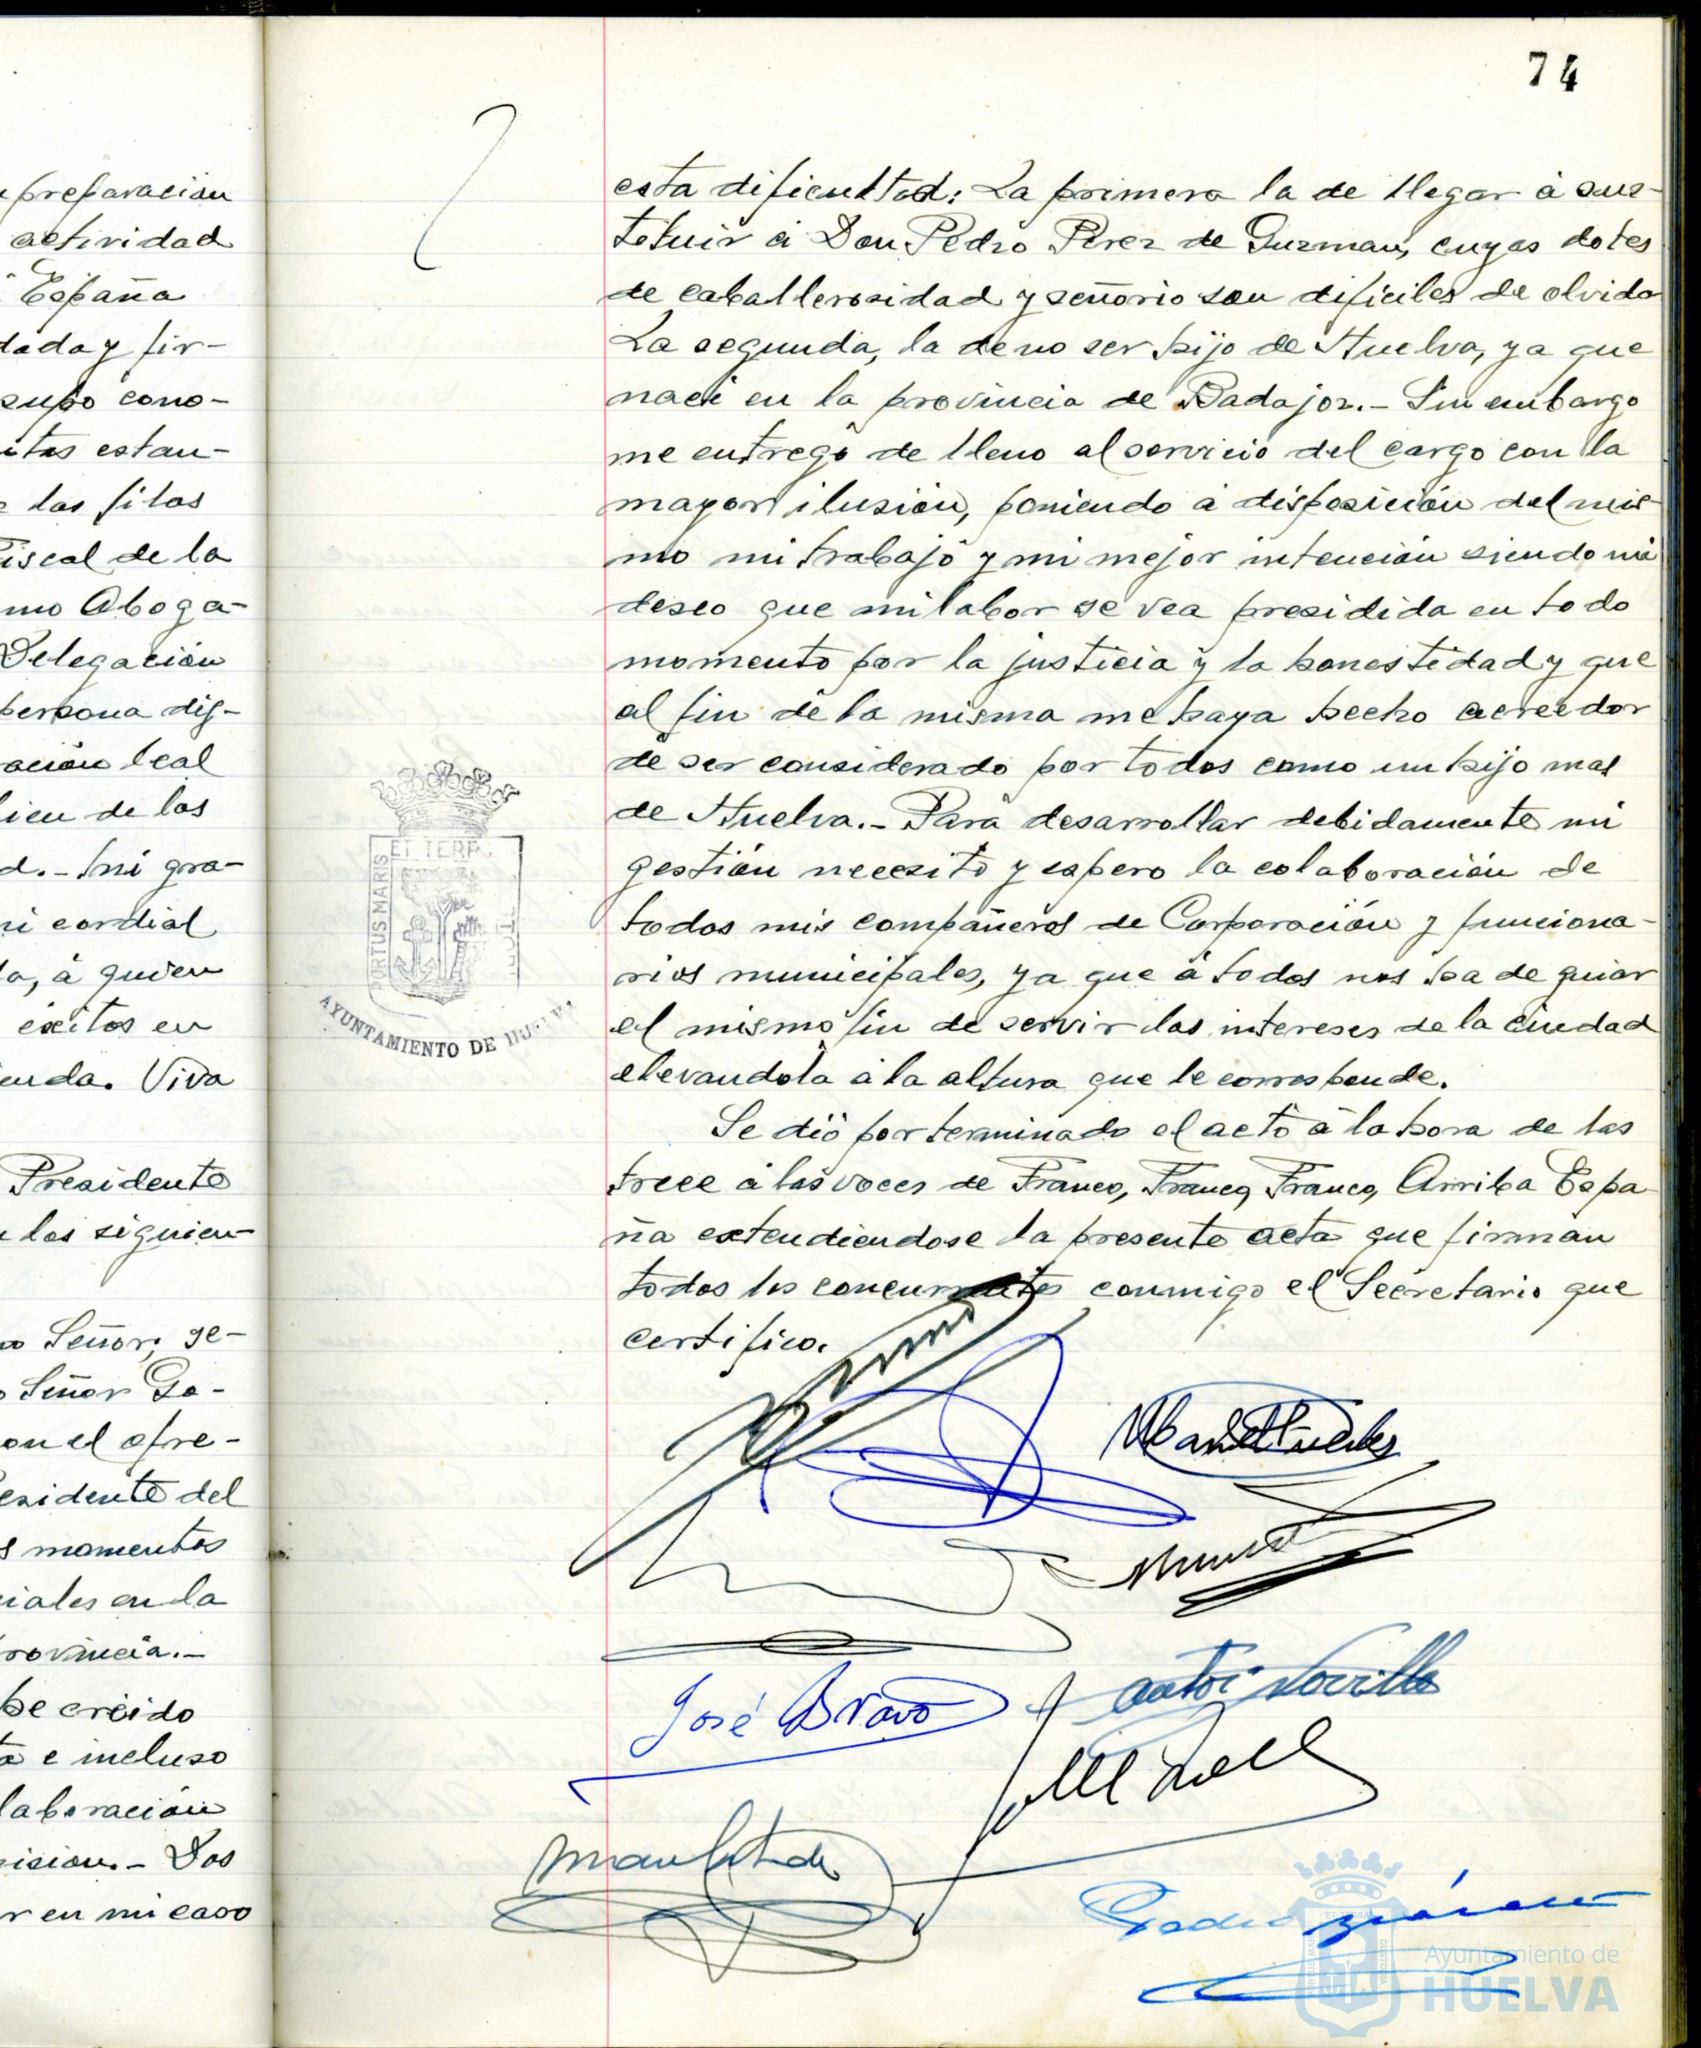 preparación
actividad
España
dada y fir-
supo cono-
estan-
las filas
iscal de la
mo Aboga-
Delegación
persona dig-
ación leal
bien de los
d.- mi gra-
mi cordial
a, á quien
éxitos en
enda. Viva
Presidente
los siguien-
Señor; se-
Señor Go-
on el ofre-
esidente del
s momentos
ciales en la
rovincia.-
he creido
e incluso
laboración
misión.- Dos
r en mi caso
74
esta dificultad: La primera la de llegar á sus-
tituir á Don Pedro Perez de Guzman, cuyas dotes
de caballerosidad y señorio son dificiles de olvida
La segunda, la de no ser hijo de Huelva, ya que
naci en la provincia de Badajoz.- Sin embargo
me entrego de lleno al servicio del cargo con la
mayor ilusión, poniendo á disposición del mis-
mo mi trabajo y mi mejor intención siendo mi
deseo que mi labor se vea presidida en todo
momento por la justicia y la honestidad y que
al fin de la misma me haya hecho acreedor
de ser considerado por todos como un hijo mas
de Huelva.- Para desarrollar debidamente mi
gestión necesito y espero la colaboración de
todos mis compañeros de Corporación y funciona-
rios municipales, ya que á todos nos ha de guiar
el mismo fin de servir los intereses de la ciudad
elevandola á la altura que le corresponde.
Se dió por terminado el acto á la hora de las
trece á las voces de Franco, Franco, Franco, Arriba Espa-
ña extendiendose la presente acta que firman
todos los concurrentes conmigo el Secretario que
certifico.
PORTUS MARIS
ET TERR
AYUNTAMIENTO DE HUELVA
José Bravo
Ayuntamiento de
HUELVA